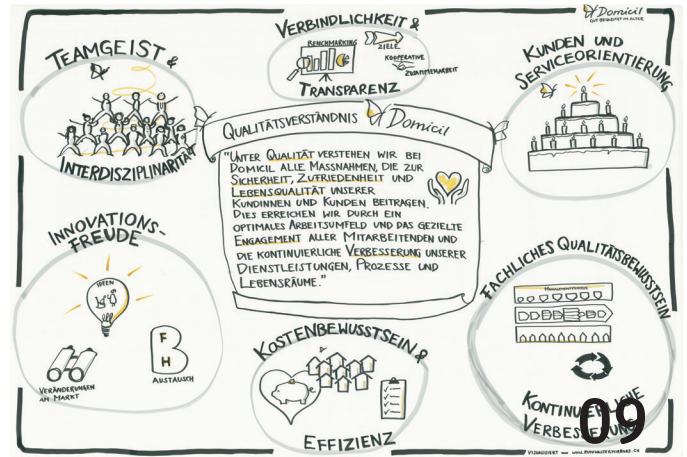 Domicil
GUT BEGLEITET IM ALTER
TEAMGEIST &
INTERDISZIPLINARITÄT
VERBINDLICHKEIT &
BENCHMARKING
ZIELE
KOOPERATIVE
ZUSAMMENARBEIT
TRANSPARENZ
KUNDEN UND
SERVICEORIENTIERUNG
QUALITÄTSVERSTÄNDNIS Domicil
"UNTER QUALITÄT VERSTEHEN WIR BEI
DOMICIL ALLE MASSNAHMEN, DIE ZUR
SICHERHEIT, ZUFRIEDENHEIT UND
LEBENSQUALITÄT UNSERER
KUNDINNEN UND KUNDEN BEITRAGEN.
DIES ERREICHEN WIR DURCH EIN
OPTIMALES ARBEITSUMFELD UND DAS GEZIELTE
ENGAGEMENT ALLER MITARBEITENDEN UND
DIE KONTINUIERLICHE VERBESSERUNG UNSERER
DIENSTLEISTUNGEN, PROZESSE UND
LEBENSRÄUME."
INNOVATIONS-
FREUDE
IDEEN
VERÄNDERUNGEN
AM MARKT
B
F
H
AUSTAUSCH
KOSTENBEWUSSTSEIN &
EFFIZIENZ
FACHLICHES QUALITÄTSBEWUSSTSEIN
KONTINUIERLICHE
VERBESSERUNG
09
VISUALISIERT